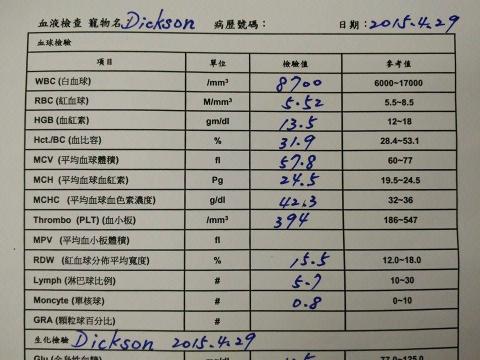 血液檢查 寵物名 Dickson 病歷號碼： 日期：2015.4.29
血球檢驗
項目 單位 檢驗值 參考值
WBC (白血球) /mm³ 8700 6000~17000
RBC (紅血球) M/mm³ 5.52 5.5~8.5
HGB (血紅素) gm/dl 13.5 12~18
Hct./BC (血比容) % 31.9 28.4~53.1
MCV (平均血球體積) fl 57.8 60~77
MCH (平均血球血紅素) Pg 24.5 19.5~24.5
MCHC (平均血球血色素濃度) g/dl 42.3 32~36
Thrombo (PLT) (血小板) /mm³ 394 186~547
MPV (平均血小板體積) fl
RDW (紅血球分佈平均寬度) % 15.5 12.0~18.0
Lymph (淋巴球比例) # 5.7 10~30
Moncyte (單核球) # 0.8 0~10
GRA (顆粒球百分比) #
生化檢驗 Dickson 2015.4.29